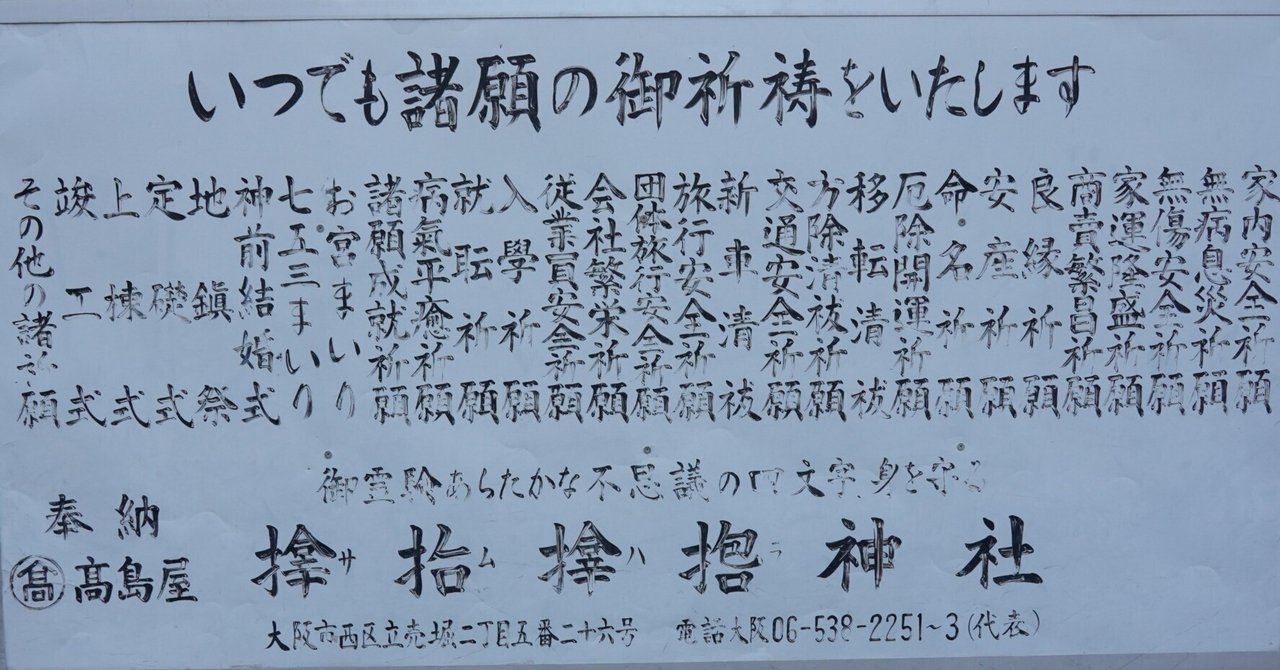 いつでも諸願の御祈祷をいたします
家内安全祈願
無病息災祈願
無傷安全祈願
家運隆盛祈願
商賣繁昌祈願
良縁祈願
安産祈願
命名祈願
厄除開運祈願
移転清祓
方除清祓祈願
交通安全祈願
新車清祓
旅行安全祈願
団体旅行安全祈願
会社繁栄祈願
従業員安全祈願
入學祈願
就転祈願
病氣平癒祈願
諸願成就祈願
お宮まいり
七五三まいり
神前結婚式
地鎮祭
定礎式
上棟式
竣工式
その他の諸祈願
御霊験あらたかな不思議の四文字身を守る
サムハラ神社
奉納
髙島屋
大阪市西区立売堀二丁目五番二十六号 電話大阪06-538-2251~3(代表)